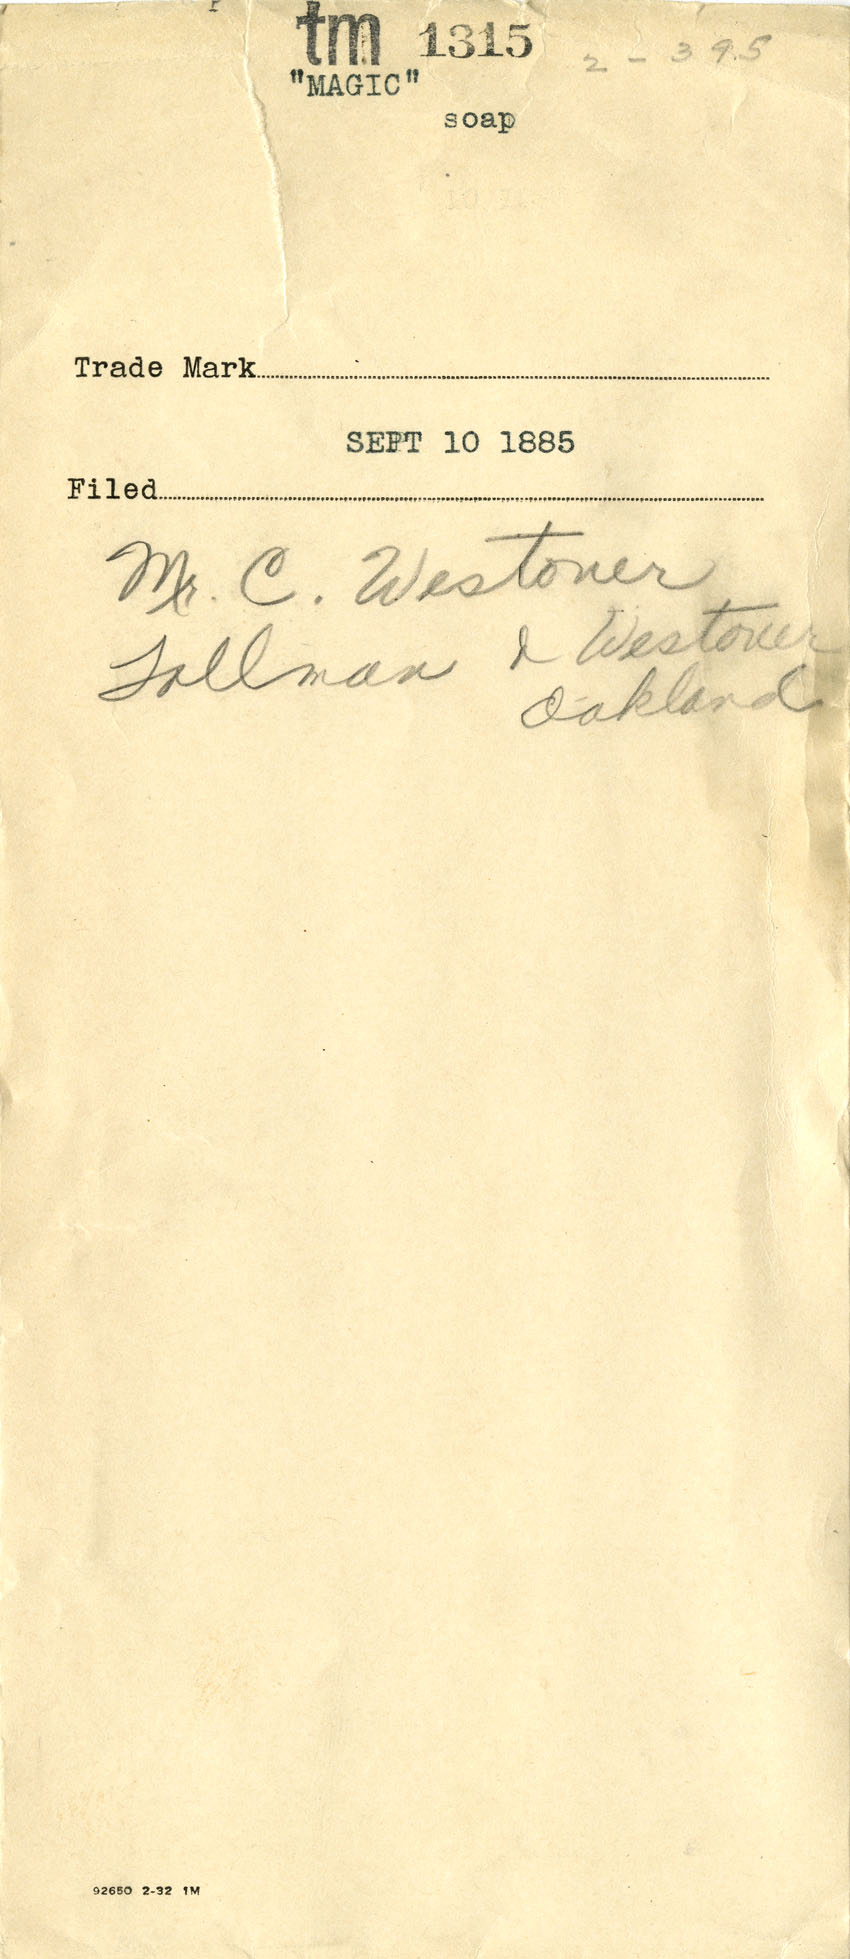 tm 1315 2-395
"MAGIC"
soap
Trade Mark
SEPT 10 1885
Filed
Mr. C. Westover
Tollman & Westover
Oakland
92650 2-32 1M